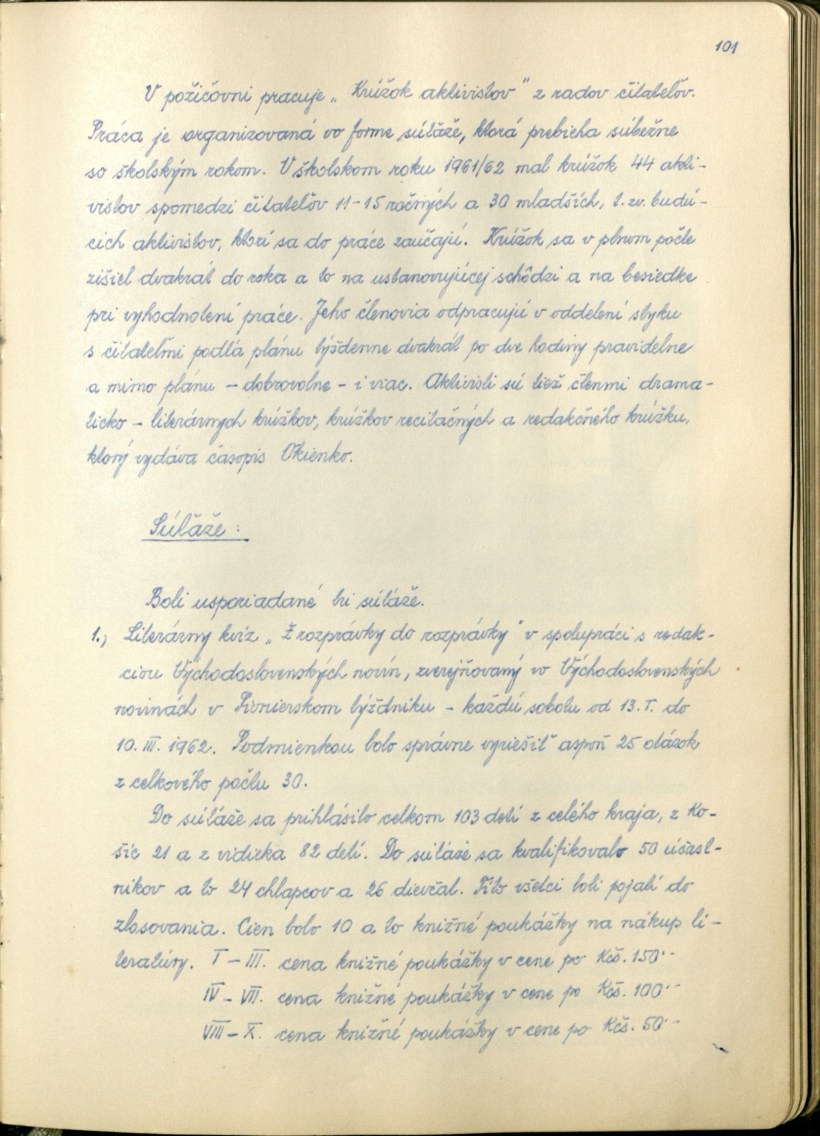 101
V požičovni pracuje „Krúžok aktivistov" z radov čitateľov.
Práca je organizovaná vo forme súťaže, ktorá prebieha súbežne
so školským rokom. V školskom roku 1961/62 mal krúžok 44 akti-
vistov spomedzi čitateľov 11-15 ročných a 30 mladších, t. zv. budú-
cich aktivistov, ktorí sa do práce zaúčajú. Krúžok sa v plnom počte
zišiel dvakrát do roka a to na ustanovujúcej schôdzi a na besiedke
pri vyhodnotení práce. Jeho členovia odpracujú v oddelení styku
s čitateľmi podľa plánu týždenne dvakrát po dve hodiny pravidelne
a mimo plánu - dobrovolne - i viac. Aktivisti sú tiež členmi drama-
ticko - literárnych krúžkov, krúžkov recitačných a redakčného krúžku,
ktorý vydáva časopis Okienko.
Súťaže:
Boli usporiadané tri súťaže.
1.) Literárny kvíz „Z rozprávky do rozprávky" v spolupráci s redak-
ciou Východoslovenských novín, zverejňovaný vo Východoslovenských
novinách v Pionierskom týždniku - každú sobotu od 13. I. do
10. III. 1962. Podmienkou bolo správne vyriešiť aspoň 25 otázok
z celkového počtu 30.
Do súťaže sa prihlásilo celkom 103 detí z celého kraja, z Ko-
šíc 21 a z vidieka 82 detí. Do súťaže sa kvalifikovalo 50 účast-
níkov a to 24 chlapcov a 26 dievčat. Títo všetci boli pojatí do
zlosovania. Cien bolo 10 a to knižné poukážky na nákup li-
teratúry. I - III. cena knižné poukážky v cene po Kčs. 150·-
IV - VII. cena knižné poukážky v cene po Kčs. 100·-
VIII - X. cena knižné poukážky v cene po Kčs. 50·-